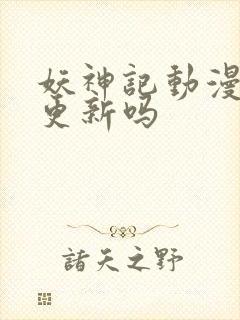 妖神記動漫
更新吗
諸天之野